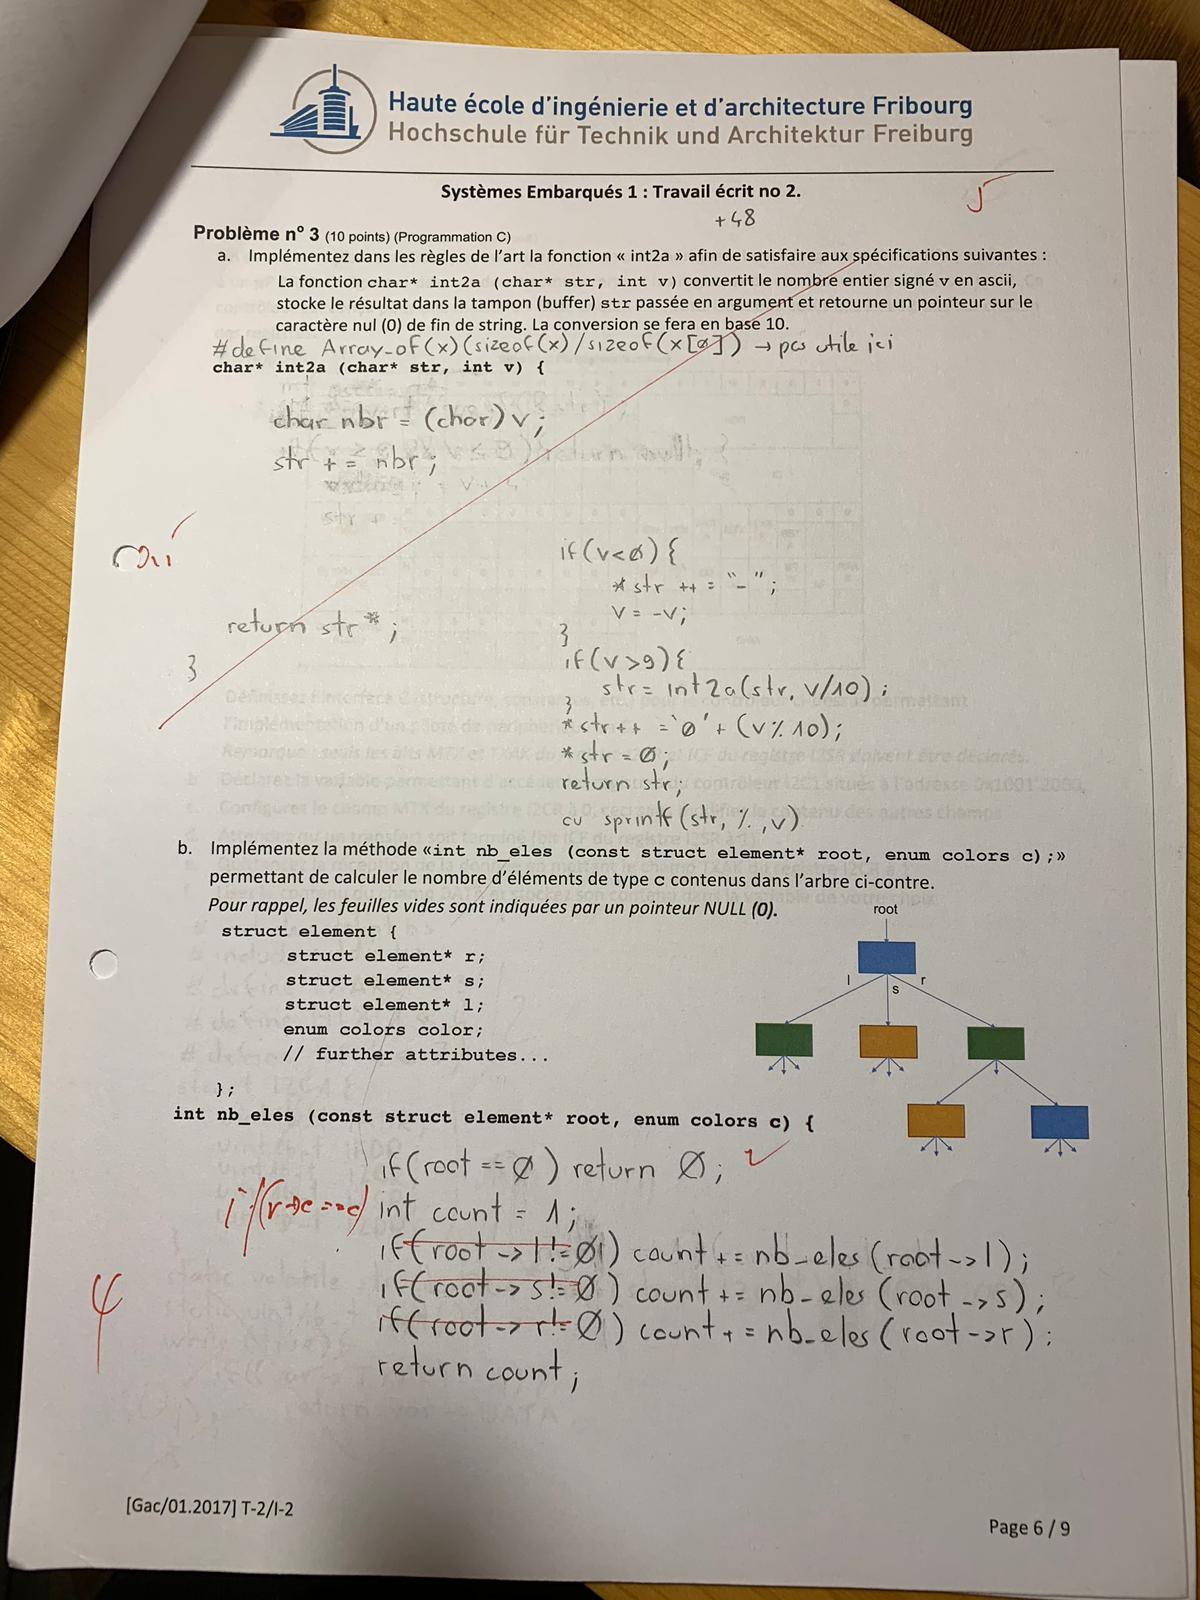 Haute école d'ingénierie et d'architecture Fribourg
Hochschule für Technik und Architektur Freiburg
Systèmes Embarqués 1 : Travail écrit no 2.
+48
Problème n° 3 (10 points) (Programmation C)
a. Implémentez dans les règles de l'art la fonction « int2a » afin de satisfaire aux spécifications suivantes :
La fonction char* int2a (char* str, int v) convertit le nombre entier signé v en ascii,
stocke le résultat dans la tampon (buffer) str passée en argument et retourne un pointeur sur le
caractère nul (0) de fin de string. La conversion se fera en base 10.
#define Array_of(x)(sizeof(x)/sizeof(x[0]) → pas utile ici
char* int2a (char* str, int v) {
char nbr = (char) v;
str += nbr;
if(v<0){
*str ++ = "-";
v = -v;
return str*;
}
}
if(v>9){
str= int2a(str, v/10);
}
*str++ ='0' + (v%10);
*str = 0;
return str;
sprintf(str, %, v)
b. Implémentez la méthode «int nb_eles (const struct element* root, enum colors c);»
permettant de calculer le nombre d'éléments de type c contenus dans l'arbre ci-contre.
Pour rappel, les feuilles vides sont indiquées par un pointeur NULL (0).
root
struct element {
struct element* r;
struct element* s;
l s r
struct element* l;
enum colors color;
// further attributes...
};
int nb_eles (const struct element* root, enum colors c) {
if(root == 0) return 0;
if(r→c==c) int count = 1;
if(root -> l != 0) count += nb_eles(root->l);
if(root -> s != 0) count += nb_eles(root->s);
if(root -> r != 0) count += nb_eles(root->r);
4
return count;
[Gac/01.2017] T-2/I-2
Page 6 / 9